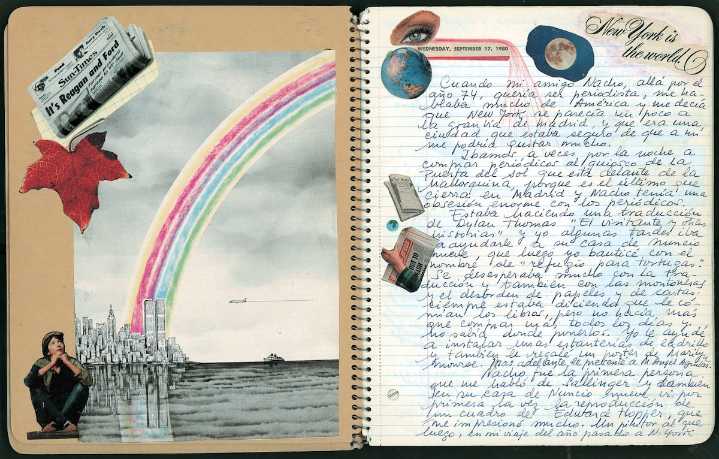 Sun-Times
It's Reagan and Ford
WEDNESDAY, SEPTEMBER 17, 1980
New York is
the world.
Cuando mi amigo Nacho, allá por el
año 74, quería ser periodista, me ha-
blaba mucho de América y me decía
que New York se parecía un poco a
la Gran Vía de Madrid y que era una
ciudad que estaba seguro de que a mí
me podría gustar mucho.
Ibamos a veces por la noche a
comprar periódicos al quiosco de la
Puerta del Sol que está delante de la
Mallorquina, porque es el último que
cierra en Madrid y Nacho tenía una
obsesión enorme con los periódicos.
Estaba haciendo una traducción
de Dylan Thomas "El visitante y otras
historias" y yo algunas tardes iba
a ayudarle a su casa de Nuncio
nueve, que luego yo bauticé con el
nombre de "refugio para tortugas".
Se desesperaba mucho con la tra-
ducción y también con las montoñas
y el desorden de papeles y de cartas,
siempre estaba diciendo que le co-
mían los libros, pero no hacía más
que comprar más todos los días y
no sabía donde ponerlos. Yo le ayudé
a instalar unas estanterías de ladrillo
y también le regalé un póster de Marilyn
Monroe. Más adelante le presenté a M. Angel Aguilar.
Nacho fue la primera persona
que me habló de Sallinger y también
en su casa de Nuncio nueve vi por
primera vez la reproducción de
un cuadro de Edward Hopper, que
me impresionó mucho. Un pintor al que
luego, en mi viaje del año pasado a N. York